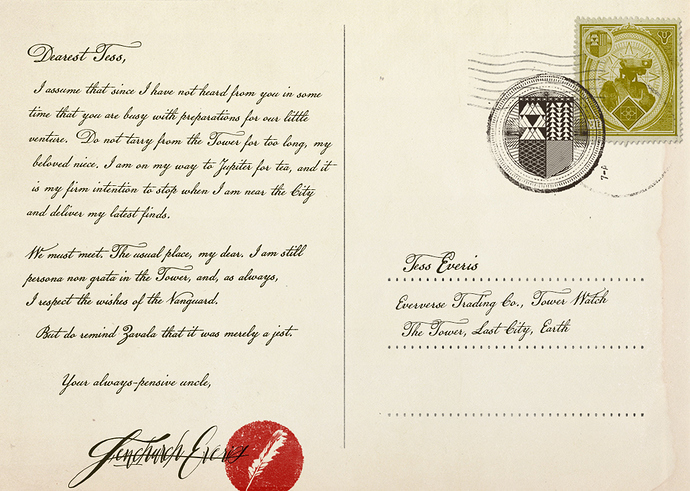 Dearest Tess,
I assume that since I have not heard from you in some
time that you are busy with preparations for our little
venture. Do not tarry from the Tower for too long, my
beloved niece. I am on my way to Jupiter for tea, and it
is my firm intention to stop when I am near the City
and deliver my latest finds.
We must meet. The usual place, my dear. I am still
persona non grata in the Tower, and, as always,
I respect the wishes of the Vanguard.
But do remind Zavala that it was merely a jest.
Your always-pensive uncle,
Fenchurch Everis
Tess Everis
Eververse Trading Co., Tower Watch
The Tower, Last City, Earth